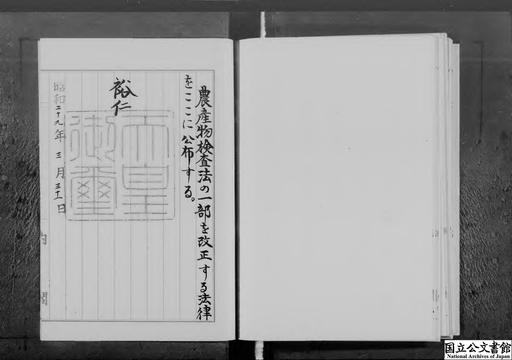 農産物検査法の一部を改正する法律
をここに公布する。
裕仁
天皇
御璽
昭和二十九年三月三十一日
内閣
国立公文書館
National Archives of Japan